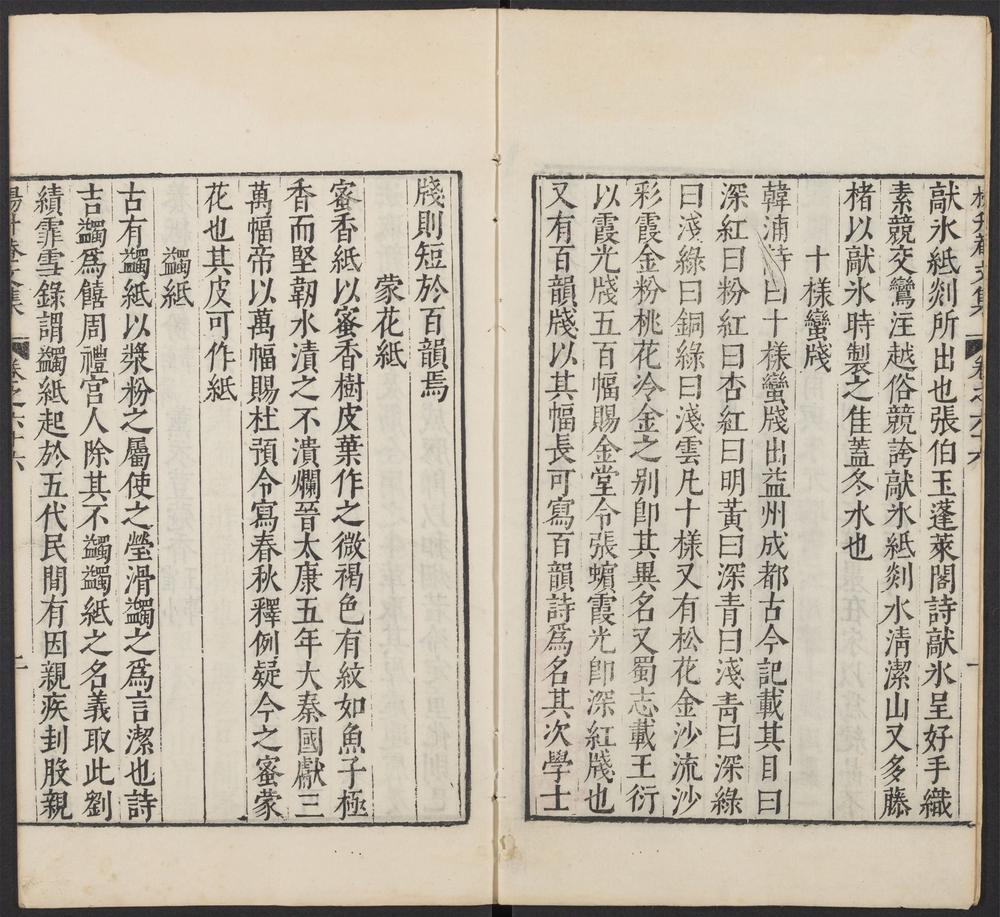 献氷紙剡所出也張伯玉蓬萊閣詩献氷呈好手織
素競交鸞注越俗競誇献氷紙剡水清潔山又多藤
楮以献氷時製之佳蓋冬水也
十樣蠻牋
韓浦詩曰十樣蠻牋出益州成都古今記載其目曰
深紅曰粉紅曰杏紅曰明黃曰深青曰淺青曰深綠
曰淺綠曰銅綠曰淺雲凡十樣又有松花金沙流沙
彩霞金粉桃花冷金之别即其異名又蜀志載王衍
以霞光牋五百幅賜金堂令張蠙霞光即深紅牋也
又有百韻牋以其幅長可寫百韻詩爲名其次學士
牋則短於百韻焉
蒙花紙
蜜香紙以蜜香樹皮葉作之微褐色有紋如魚子極
香而堅韌水漬之不潰爛晉太康五年大秦國獻三
萬幅帝以萬幅賜杜預令寫春秋釋例疑今之蜜蒙
花也其皮可作紙
蠲紙
古有蠲紙以漿粉之屬使之瑩滑蠲之爲言潔也詩
吉蠲爲饎周禮宮人除其不蠲蠲紙之名義取此劉
績霏雪錄謂蠲紙起於五代民間有因親疾封股親
楊升菴文集
卷之六十六